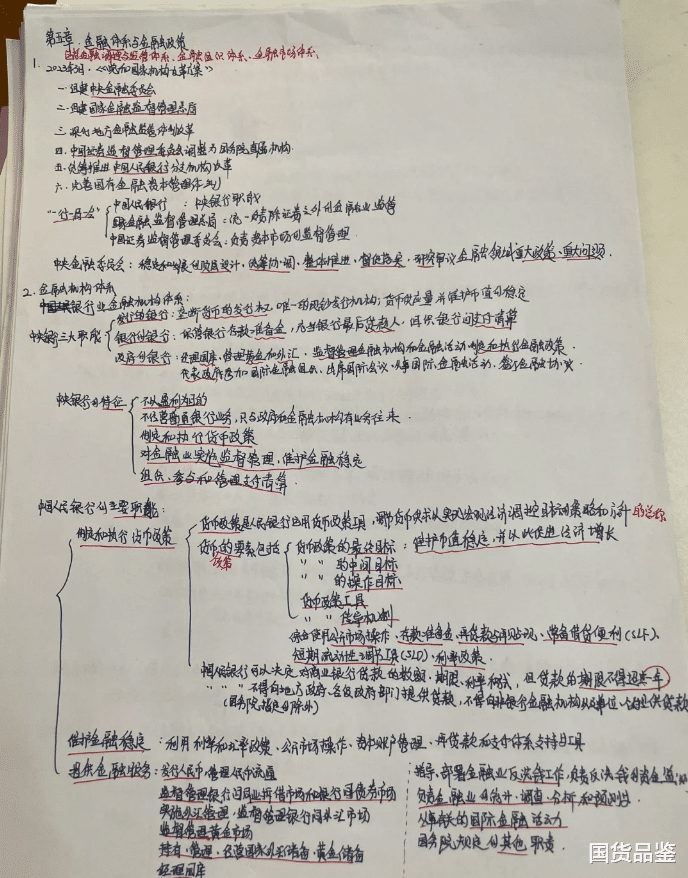 第五章 金融体系与金融政策
包括金融调控与监管体系、金融组织体系、金融市场体系
1. 2023年3月，《党和国家机构改革方案》
一、组建中央金融委员会
二、组建国家金融监督管理总局
三、深化地方金融监管体制改革
四、中国证券监督管理委员会调整为国务院直属机构
五、统筹推进中国人民银行分支机构改革
六、完善国有金融资本管理体制
"一行一局一会"
中国人民银行：中央银行职能
国家金融监督管理总局：统一负责除证券之外的金融业监管
中国证券监督管理委员会：负责资本市场的监督管理
中央金融委员会：稳定和发展的顶层设计，统筹协调，整体推进，督促落实，研究审议金融领域重大政策、重大问题。
2. 金融机构体系
银行业金融机构体系：
中央银行三大职能
发行的银行：垄断货币的发行权，唯一的现钞发行机构；货币供应量并维护币值的稳定
银行的银行：保管银行存款准备金，充当银行最后贷款人，组织银行间支付清算
政府的银行：经理国库，管理黄金和外汇，监督管理金融机构和金融活动，制定和执行金融政策。
代表政府参加国际金融组织，出席国际会议，从事国际金融活动，签订金融协议
中央银行的特征
不以盈利为目的
不经营普通银行业务，只与政府和金融机构有业务往来
制定和执行货币政策
对金融业实施监督管理，维护金融稳定
组织、参与和管理支付清算
中国人民银行的主要职能：
制定和执行货币政策
货币政策是人民银行运用货币政策工具，调节货币供求以实现宏观经济调控目标的策略和方针 的总称
货币政策的要素包括
货币政策的最终目标：维护币值稳定，并以此促进经济增长
〃 〃 的中间目标
〃 〃 的操作目标
货币政策工具
〃 〃 传导机制
综合使用公开市场操作、存款准备金、再贷款与再贴现、常备借贷便利(SLF)、
短期流动性调节工具(SLO)、利率政策
中国人民银行可以决定对商业银行贷款的数额、期限、利率和方式，但贷款的期限不得超过一年
〃 〃 〃 不得向地方政府、各级政府部门提供贷款，不得向非银行金融机构以及单位、个人提供贷款
(国务院规定的除外)
维护金融稳定：利用利率和汇率政策、公开市场操作、资本账户管理、再贷款和支付体系支持的工具
提供金融服务：发行人民币，管理人民币流通
监督管理银行间同业拆借市场和银行间债券市场
实施外汇管理，监督管理银行间外汇市场
监督管理黄金市场
持有、管理、经营国家外汇储备、黄金储备
经理国库
指导、部署金融业反洗钱工作，负责反洗钱的资金监测
负责金融业的统计、调查、分析和预测
从事有关的国际金融活动
国务院规定的其他职责
国货品鉴